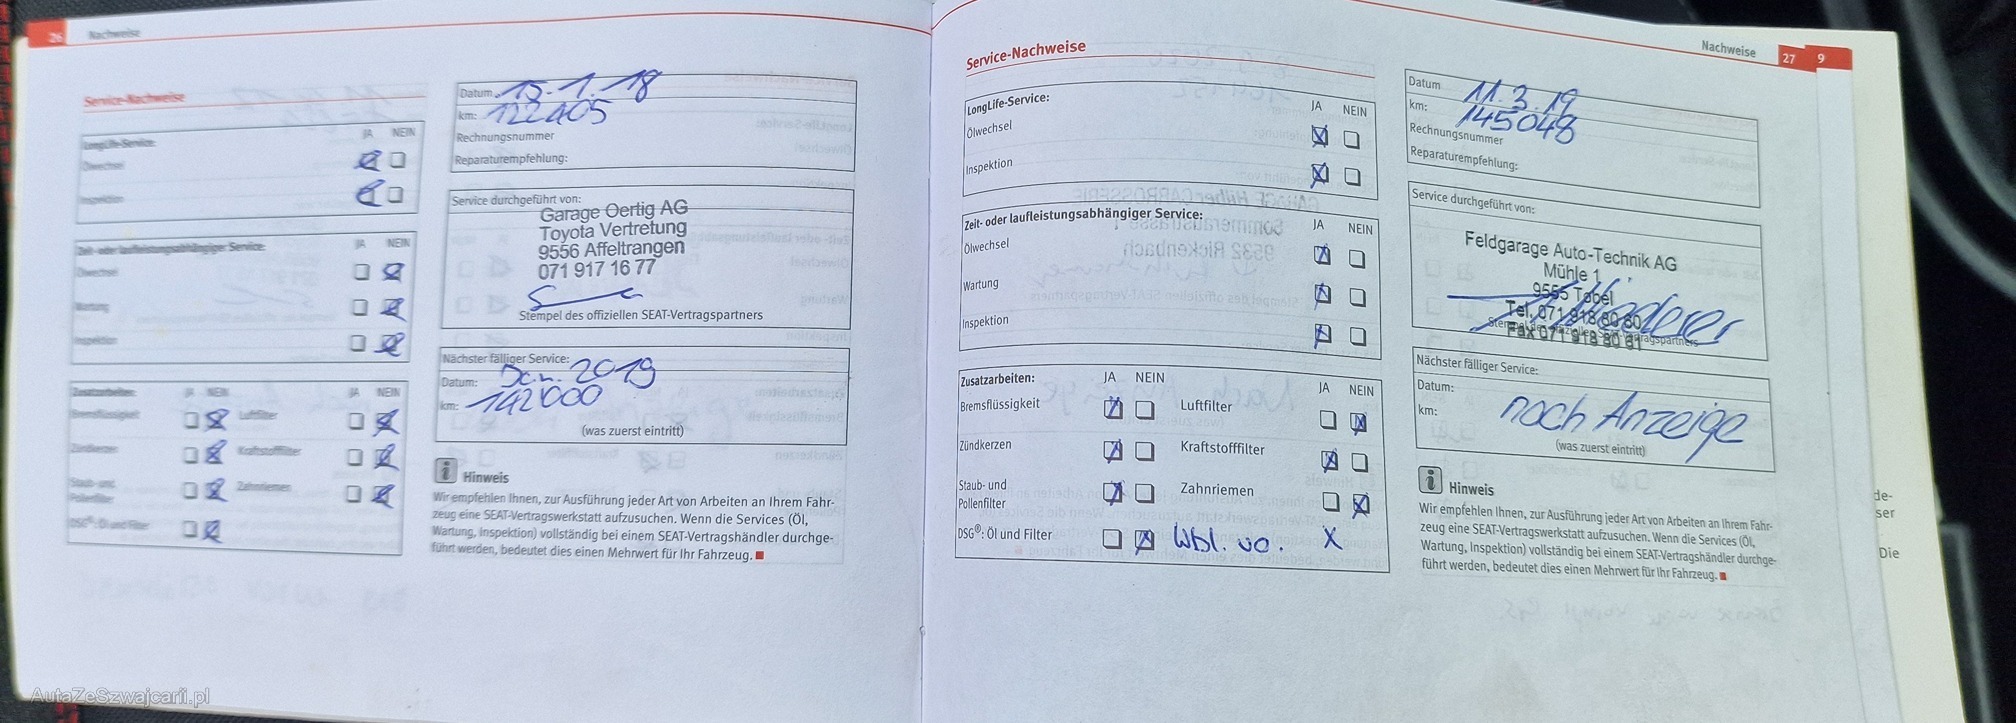 26 Nachweise
Service-Nachweise
LongLife-Service:
JA NEIN
Ölwechsel
Inspektion
Zeit- oder laufleistungsabhängiger Service:
JA NEIN
Ölwechsel
Wartung
Inspektion
Zusatzarbeiten:
JA NEIN JA NEIN
Bremsflüssigkeit Luftfilter
Zündkerzen Kraftstofffilter
Staub- und
Pollenfilter
Zahnriemen
DSG®: Öl und Filter
Datum 15.1.18
km: 122405
Rechnungsnummer
Reparaturempfehlung:
Service durchgeführt von:
Garage Oertig AG
Toyota Vertretung
9556 Affeltrangen
071 917 16 77
Stempel des offiziellen SEAT-Vertragspartners
Nächster fälliger Service:
Datum: Jan. 2019
km: 142000
(was zuerst eintritt)
i Hinweis
Wir empfehlen Ihnen, zur Ausführung jeder Art von Arbeiten an Ihrem Fahr-
zeug eine SEAT-Vertragswerkstatt aufzusuchen. Wenn die Services (Öl,
Wartung, Inspektion) vollständig bei einem SEAT-Vertragshändler durchge-
führt werden, bedeutet dies einen Mehrwert für Ihr Fahrzeug.
Nachweise 27 9
Service-Nachweise
LongLife-Service:
JA NEIN
Ölwechsel
Inspektion
Zeit- oder laufleistungsabhängiger Service:
JA NEIN
Ölwechsel
Wartung
Inspektion
Zusatzarbeiten:
JA NEIN JA NEIN
Bremsflüssigkeit Luftfilter
Zündkerzen Kraftstofffilter
Staub- und
Pollenfilter
Zahnriemen
DSG®: Öl und Filter Wbl. vo. X
Datum 11.3.19
km: 145048
Rechnungsnummer
Reparaturempfehlung:
Service durchgeführt von:
Feldgarage Auto-Technik AG
Mühle 1
9555 Tobel
Tel. 071 918 80 80
Stempel des offiziellen SEAT-Vertragspartners
Fax 071 918 80 81
Nächster fälliger Service:
Datum:
km:
nach Anzeige
(was zuerst eintritt)
i Hinweis
Wir empfehlen Ihnen, zur Ausführung jeder Art von Arbeiten an Ihrem Fahr-
zeug eine SEAT-Vertragswerkstatt aufzusuchen. Wenn die Services (Öl,
Wartung, Inspektion) vollständig bei einem SEAT-Vertragshändler durchge-
führt werden, bedeutet dies einen Mehrwert für Ihr Fahrzeug.
de-
ser
Die
AutaZeSzwajcarii.pl